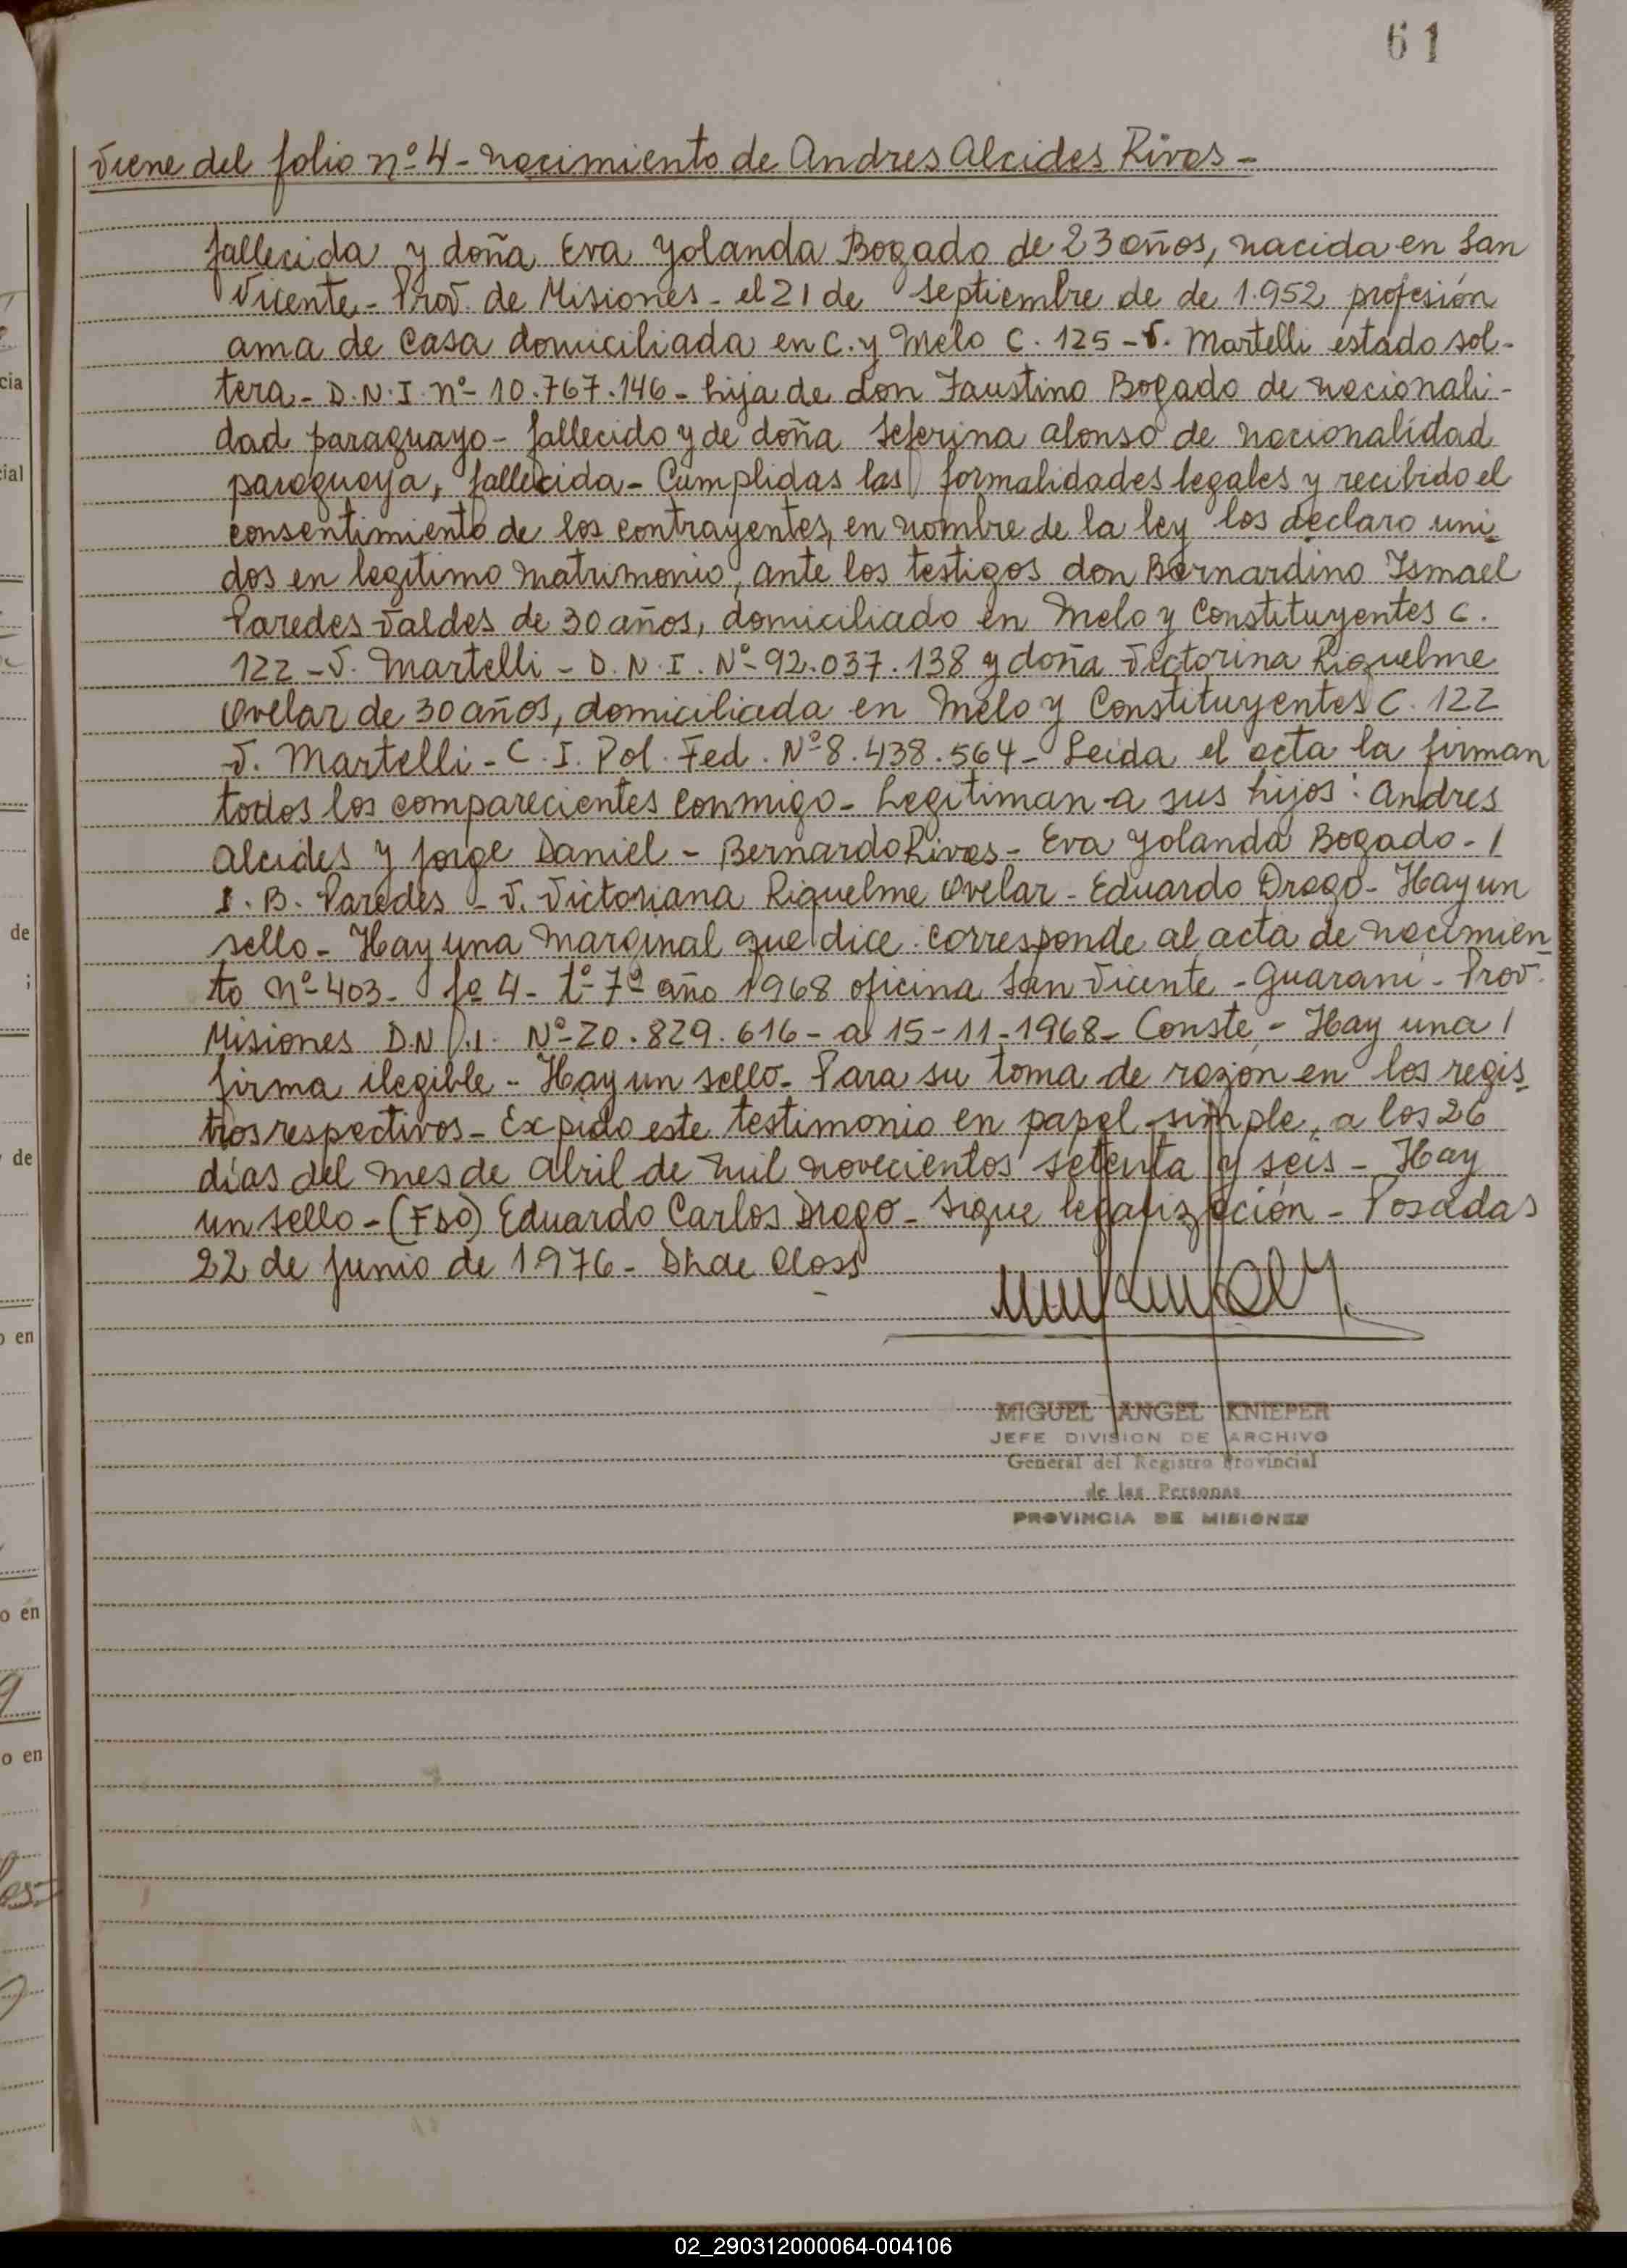 61
Viene del folio nº 4 - nacimiento de Andres Alcides Rivas -
fallecida y doña Eva Yolanda Bogado de 23 años, nacida en San
Vicente - Prov. de Misiones - el 21 de septiembre de de 1.952 profesión
ama de casa domiciliada en C. y Melo C. 125 - V. Martelli estado sol-
tera - D.N.I. nº 10.767.146 - hija de don Faustino Bogado de nacionali-
dad paraguayo - fallecido y de doña Seferina Alonso de nacionalidad
paraguaya, fallecida - Cumplidas las formalidades legales y recibido el
consentimiento de los contrayentes, en nombre de la ley los declaro uni-
dos en legítimo matrimonio, ante los testigos don Bernardino Ismael
Paredes Valdes de 30 años, domiciliado en Melo y Constituyentes C.
122 - V. Martelli - D.N.I. Nº 92.037.138 y doña Victorina Riquelme
Ovelar de 30 años, domiciliada en Melo y Constituyentes C. 122
V. Martelli - C.I. Pol. Fed. Nº 8.438.564 - Leida el acta la firman
todos los comparecientes conmigo - Legitiman a sus hijos: Andres
Alcides y Jorge Daniel - Bernardo Rivas - Eva Yolanda Bogado - /
I. B. Paredes - V. Victoriana Riquelme Ovelar - Eduardo Drago - Hay un
sello - Hay una marginal que dice: corresponde al acta de nacimien
to nº 403 - fº 4 - tº 7º año 1968 oficina San Vicente - Guaraní - Prov.
Misiones D.N.I. Nº 20.829.616 - a 15-11-1968 - Conste - Hay una /
firma ilegible - Hay un sello - Para su toma de razón en los regis-
tros respectivos - Expido este testimonio en papel simple, a los 26
días del mes de Abril de mil novecientos setenta y seis - Hay
un sello - (FDO) Eduardo Carlos Drago - Sigue legalización - Posadas
22 de junio de 1976 -
MIGUEL ANGEL KNIEPER
JEFE DIVISION DE ARCHIVO
General del Registro Provincial
de las Personas
PROVINCIA DE MISIONES
cia
cial
de
;
de
o en
o en
o en
02_290312000064-004106